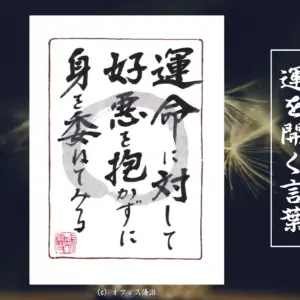 運を開く言葉
運命に対して
好悪を抱かずに
身を委ねてみる
(c) オフィス湧泉